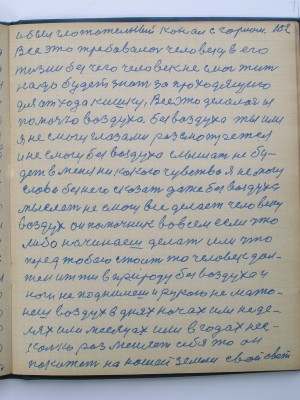 и был глотательный канал с горлом 152
Все это требовалось человеку в его
жизни без чего человек не смог жит
надо будет знат за проходящего
для отхода кишку, Все это делалося
помогло воздуха без воздуха ты или
я не смогу глазами розсмотрется
и не смогу без воздуха слышат не бу-
дет в меня ни какого чувство я не могу
слово без него сказат даже без воздуха
мыслет не смогу все делает человеку
воздух он помочник во всем если что
либо начинаеш делат или что
перед тобою стоит то человек дол-
жен итти в природу без воздуха и
ноги не поднимеш и рукою не мах-
неш воздух в днях ночах или неде-
лях или месяцах или в годах нес-
колко разменяет себя то он
покажет на нашей земли свой свет